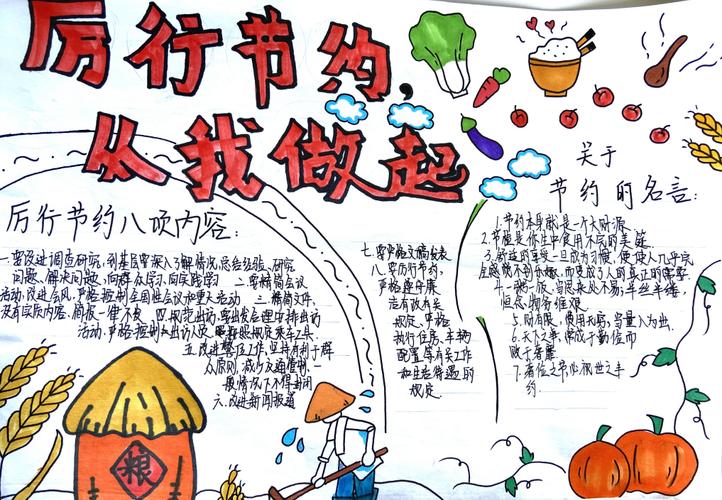 厉行节约,
从我做起
厉行节约八项内容:
一要改进调查研究,到基层要深入了解情况,总结经验、研究
问题、解决问题,向群众学习,向实践学习 二要精简会议
活动,改进会风,严格控制全国性会议和重大活动 三精简文件,
没有实质内容,简报一律不发 四规范出访,要出发合理安排出访
活动,严格控制出访人员,照规定乘车工具
五改进警卫工作,坚持有利于群
众原则,减少交通管制,一
般情况下不得封闭
六改进新闻报道
七要严格文稿发表
八要厉行节约,
严格遵守廉
洁有政有关
规定,严格
执行住房、车辆
配置等有关工作
和生活待遇的
规定.
关于
节约的名言:
1.节约本身就是一个大财源
2.节俭是你一生中食用不完的美筵
3.奢侈的享受一旦成为习惯,便使人几乎完
全感觉不到乐趣,而变成了人的真正的需要
4.一粥一饭,当思来处不易,半丝半缕
恒念物力维艰
5.财有限,费用无穷,当量入为出.
6.天下之事,常成于勤俭而
败于奢靡
7.
约.
粮